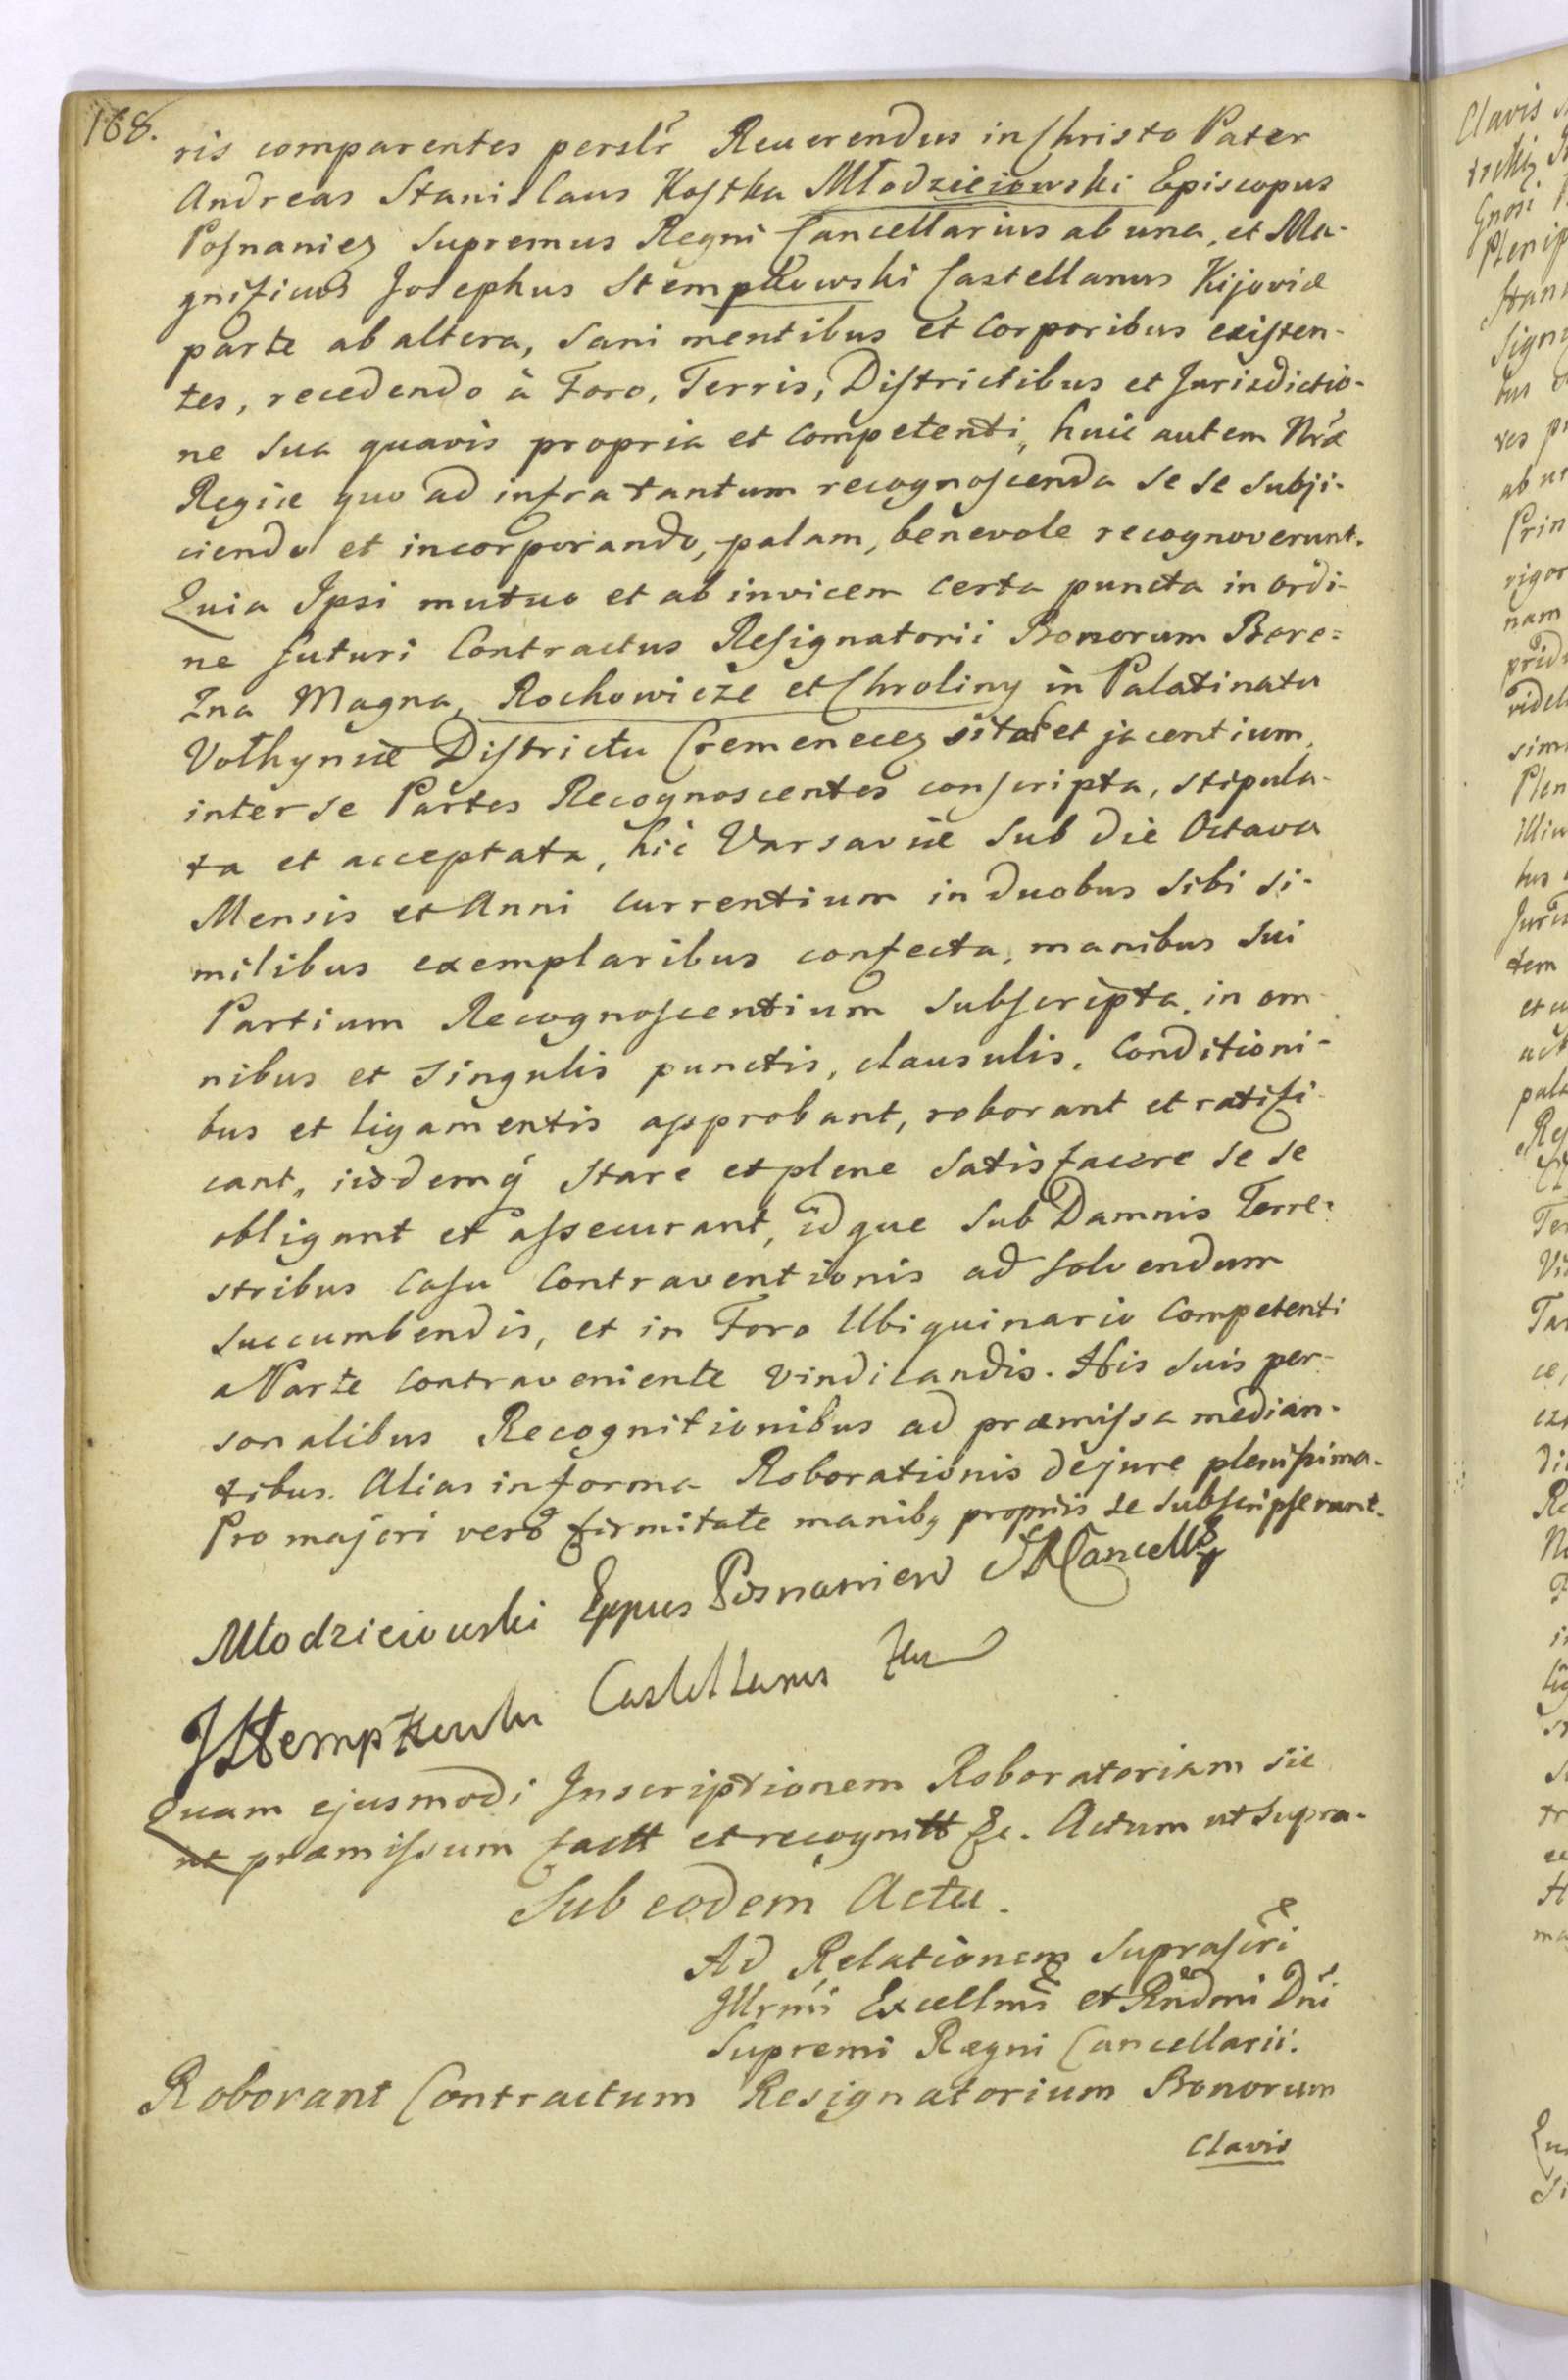 168.
ris comparentes perslr Reverendus in Christo Pater
Andreas Stanislaus Kostka Młodzieiowski Episcopus
Posnanien Supremus Regni Cancellarius ab una, et Ma-
gnificus Josephus Stempkowski Castellanus Kijoviæ
parte ab altera, sani mentibus et Corporibus existen-
tes, recedendo à Foro, Terris, Districtibus et Jurisdictio-
ne sua quavis propria et Competenti, huic autem Nrã
Regiæ quo ad infra tantum recognoscenda se se subji-
ciendo et incorporando, palam, benevole recognoverunt.
Quia Ipsi mutuo et ab invicem certa puncta in ordi-
ne futuri Contractus Resignatorii Bonorum Bere=
zna Magna, Rochowicze et Chroliny in Palatinatu
Volhyniæ Districtu Cremenecen sitor et jacentium,
inter se Partes Recognoscentes conscripta, stipula-
ta et acceptata, hic Varsaviæ Sub die Octava
Mensis et Anni currentium in duobus sibi si-
milibus exemplaribus confecta, manibus sui
Partium Recognoscentium subscripta, in om-
nibus et singulis punctis, clausulis, Conditioni-
bus et ligamentis approbant, roborant et ratifi-
cant, iisdemq́ stare et plene satisfacere se se
obligant et assecurant, idque sub Damnis Terre-
stribus casu Contraventionis ad solvendum
succumbendis, et in Foro Ubiquinario Competenti
a Parte contraveniente vindicandis. His suis per-
sonalibus Recognitionibus ad præmissa median-
tibus. Alias in forma Roborationis de jure plenissima.
Pro majori verò firmitate manibq propriis se subscripserunt.
Młodzieiowski Eppus Posnanien S R Cancell
JStempkowski Castellanus
Quam ejusmodi Inscriptionem Roboratoriam sic
ut præmissum factt et recognitt &c. Actum ut supra.
Sub eodem Actu.
Ad Relationem Suprascri
Illrmi Excellmi et Rndmi Dni
Supremi Regni Cancellarii.
Roborant Contractum Resignatorium Bonorum
Clavis